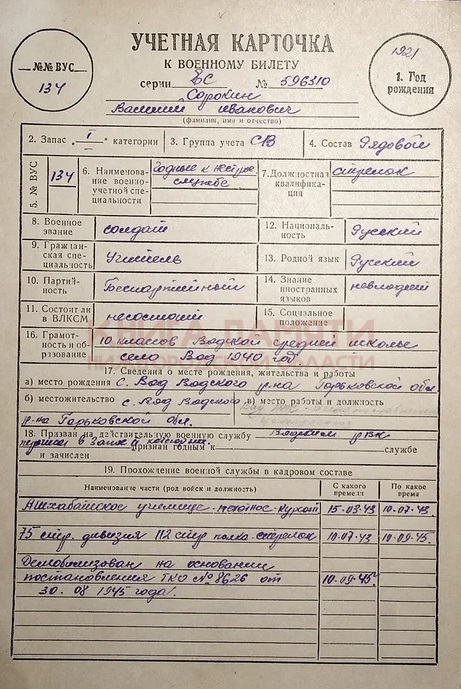 №№ ВУС
134
УЧЕТНАЯ КАРТОЧКА
К ВОЕННОМУ БИЛЕТУ
серии ВС № 596310
Сорокин
Валентин Иванович
(фамилия, имя и отчество)
1921
1. Год
рождения
2. Запас I категории
3. Группа учета СВ
4. Состав Рядовой
5. № ВУС
134
6. Наименование военно-учетной специальности
годные к нестрое. службе
7. Должностная квалификация
стрелок
8. Военное звание
солдат
12. Национальность
Русский
9. Гражданская специальность
Учитель
13. Родной язык
Русский
10. Партийность
Беспартийный
14. Знание иностранных языков
невладеет
11. Состоит ли в ВЛКСМ
несостоит
15. Социальное положение
КНИГА ПАМЯТИ
16. Грамотность и образование
10 классов Вадской средней школы
село Вад 1940 год.
17. Сведения о месте рождения, жительства и работы
а) место рождения с. Вад Вадского р-на Горьковской обл.
б) местожительство с. Вад Вадского
в) место работы и должность
р-на Горьковской обл.
18. Призван на действительную военную службу Вадским РВК
признан годным к службе
и зачислен
19. Прохождение военной службы в кадровом составе
Наименование части (род войск и должность)
С какого времени
По какое время
Ашхабадское училище - пехотное - курсант 15-03-43 10-07-43
75 стр. дивизия 112 стр полка - стрелок 10-07-43 10-09-45
Демобилизован на основании
постановления ГКО № 8626 от 10-09-45
30.08 1945 года.